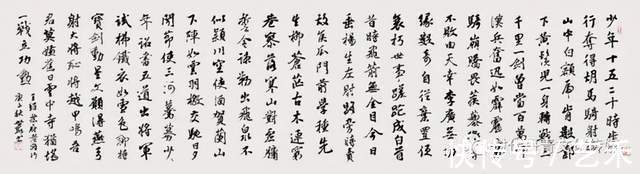 少年十五二十時步
行奪得胡馬騎射殺
山中白額虎肯數鄴
下黃鬚兒一身轉戰三
千里一劍曾當百萬師
漢兵奮迅如霹靂虜
騎崩騰畏蒺藜衛青
不敗由天幸李廣無功
緣數奇自從棄置便
衰朽世事蹉跎成白首
昔時飛箭無全目今日
垂楊生左肘路旁時賣
故侯瓜門前學種先
生柳蒼茫古木連窮
巷寥落寒山對虛牖
誓令疏勒出飛泉不
似潁川空使酒賀蘭山
下陣如雲羽檄交馳日夕
聞節使三河募少
年詔書五道出將軍
試拂鐵衣如雪色聊持
寶劍動星文願得燕弓
射大將恥將越甲鳴吾
君莫嫌舊日雲中守猶堪
一戰立功勳
庚子秋
快传号/艺术